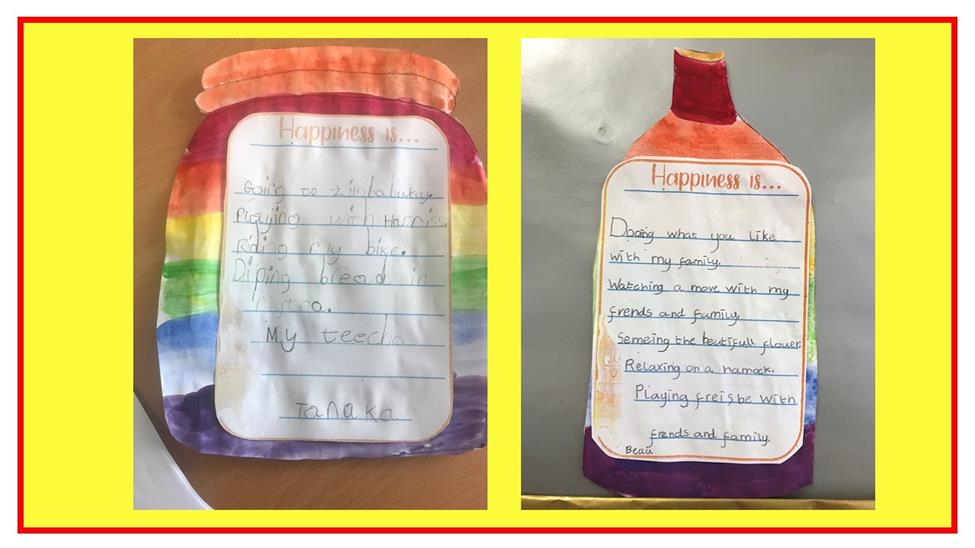 Happiness is...
Going to zimbabuwy.
Playing with Harriss
Riding my bike.
Diping bread in
my tea.
My teecha
Tanaka
Happiness is...
Dooing what you like
with my family.
Watching a move with my
frends and family
Semeing the beutifull flower.
Relaxing on a hamock.
Playing freisbe with
frends and family.
Beau